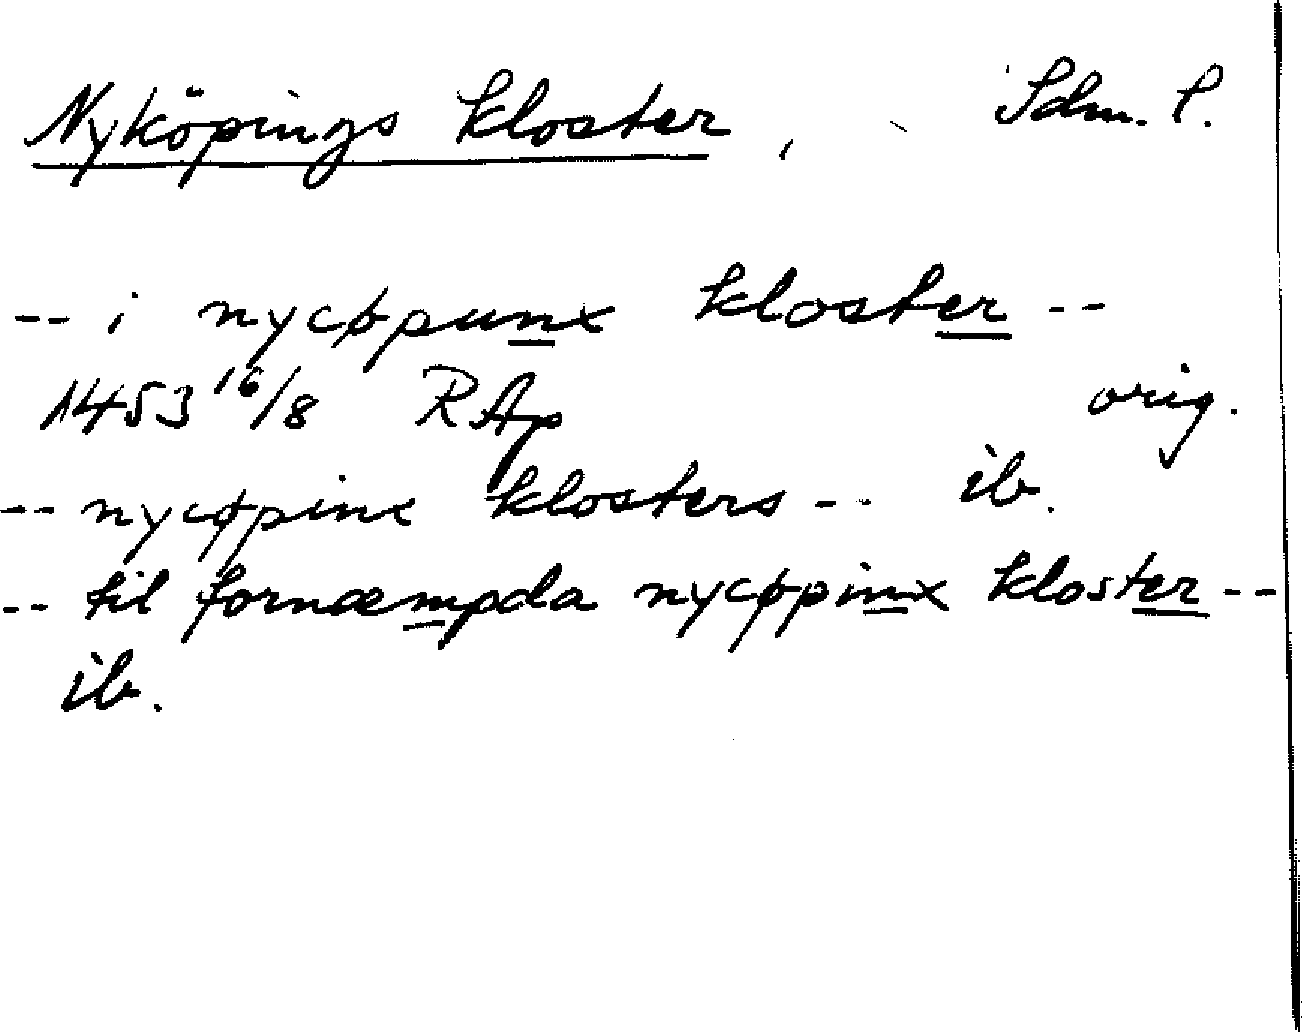 Nyköpings kloster, Sdm. l.
-- i nycøpunx kloster --
1453 16/8 RAp orig.
-- nycøpinx klosters -- ib.
-- til fornæmpda nycøpinx kloster --
ib.